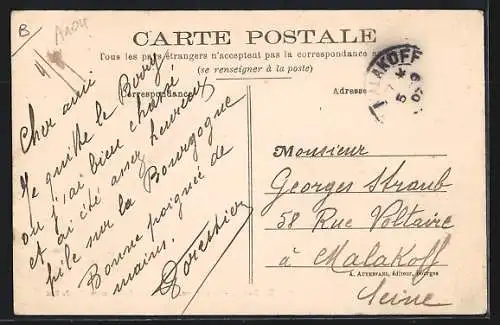 B
A1104
CARTE POSTALE
Tous les pays étrangers n'acceptent pas la correspondance au
(se renseigner à la poste)
Correspondance
Adresse
MALAKOFF
Cher ami
Je quitte le Bourg
ou j'ai bien chassé
et ai été assez heureux
pile sur la Bourgogne
Bonne poignée de
mains.
Monsieur
Georges Straub
58 Rue Voltaire
à Malakoff
A. Auxenfans, éditeur, Bourges
Seine